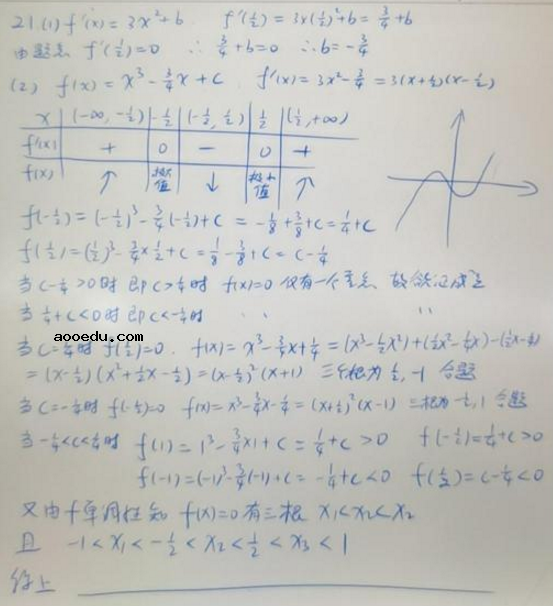 21.(1) f'(x)=3x²+b. f'(½)=3×(½)²+b=¾+b
由题意 f'(½)=0 ∴ ¾+b=0 ∴b=-¾
(2) f(x)=x³-¾x+c f'(x)=3x²-¾=3(x+½)(x-½)
x (-∞,-½) -½ (-½,½) ½ (½,+∞)
f'(x) + 0 - 0 +
f(x) ↑ 极大值 ↓ 极小值 ↑
f(-½)=(-½)³-¾(-½)+c=-⅛+⅜+c=¼+c
f(½)=(½)³-¾×½+c=⅛-⅜+c=c-¼
当c-¼>0时 即c>¼时 f(x)=0 仅有一个零点 故欲证成立
当¼+c<0时 即c<-¼时 ‥ ‥
aooedu.com
当c=¼时 f(½)=0. f(x)=x³-¾x+¼=(x³-½x²)+(½x²-¼x)-(½x-¼)
=(x-½)(x²+½x-½)=(x-½)²(x+1) 三根为½,-1 合题
当c=-¼时 f(-½)=0 f(x)=x³-¾x-¼=(x+½)²(x-1) 三根为-½,1 合题
当-¼<c<¼时 f(1)=1³-¾×1+c=¼+c>0 f(-½)=¼+c>0
f(-1)=(-1)³-¾(-1)+c=-¼+c<0 f(½)=c-¼<0
又由f单调性知 f(x)=0有三根 x₁<x₂<x₂
且 -1<x₁<-½<x₂<½<x₃<1
综上